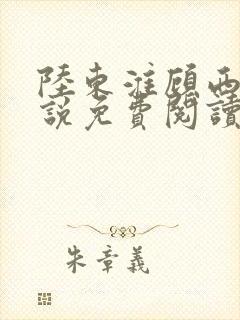 陸東漼顧西
說免費閱讀
朱章義